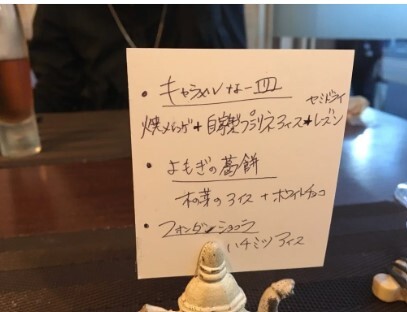 • キャラメルな一皿
焼メレンゲ+自家製プラリネアイス+セミドライレーズン
• よもぎの葛餅
木の芽のアイス + ホワイトチョコ
• フォンダンショコラ
ハチミツアイス